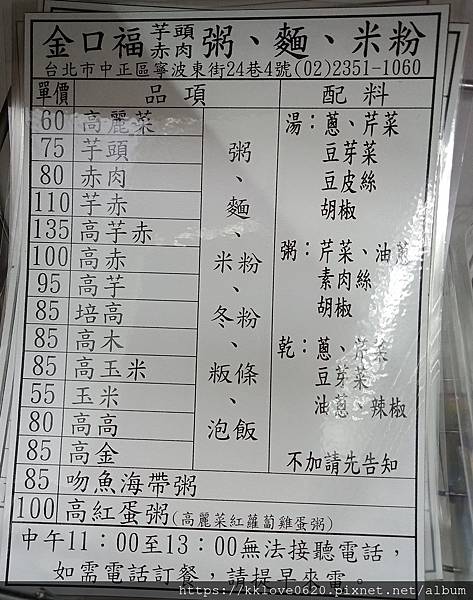 金口福芋頭赤肉粥、麵、米粉
台北市中正區寧波東街24巷4號(02)2351-1060
單價 品項 配料
60 高麗菜
75 芋頭
80 赤肉
110 芋赤
135 高芋赤
100 高赤
95 高芋
85 培高
85 高木
85 高玉米
55 玉米
80 高高
85 高金
粥、麵、米粉、冬粉、粄條、泡飯
湯：蔥、芹菜
豆芽菜
豆皮絲
胡椒
粥：芹菜、油蔥
素肉絲
胡椒
乾：蔥、芹菜
豆芽菜
油蔥、辣椒
不加請先告知
85 吻魚海帶粥
100 高紅蛋粥(高麗菜紅蘿蔔雞蛋粥)
中午11：00至13：00無法接聽電話，
如需電話訂餐，請提早來電。
https://kklove0620.pixnet.net/album